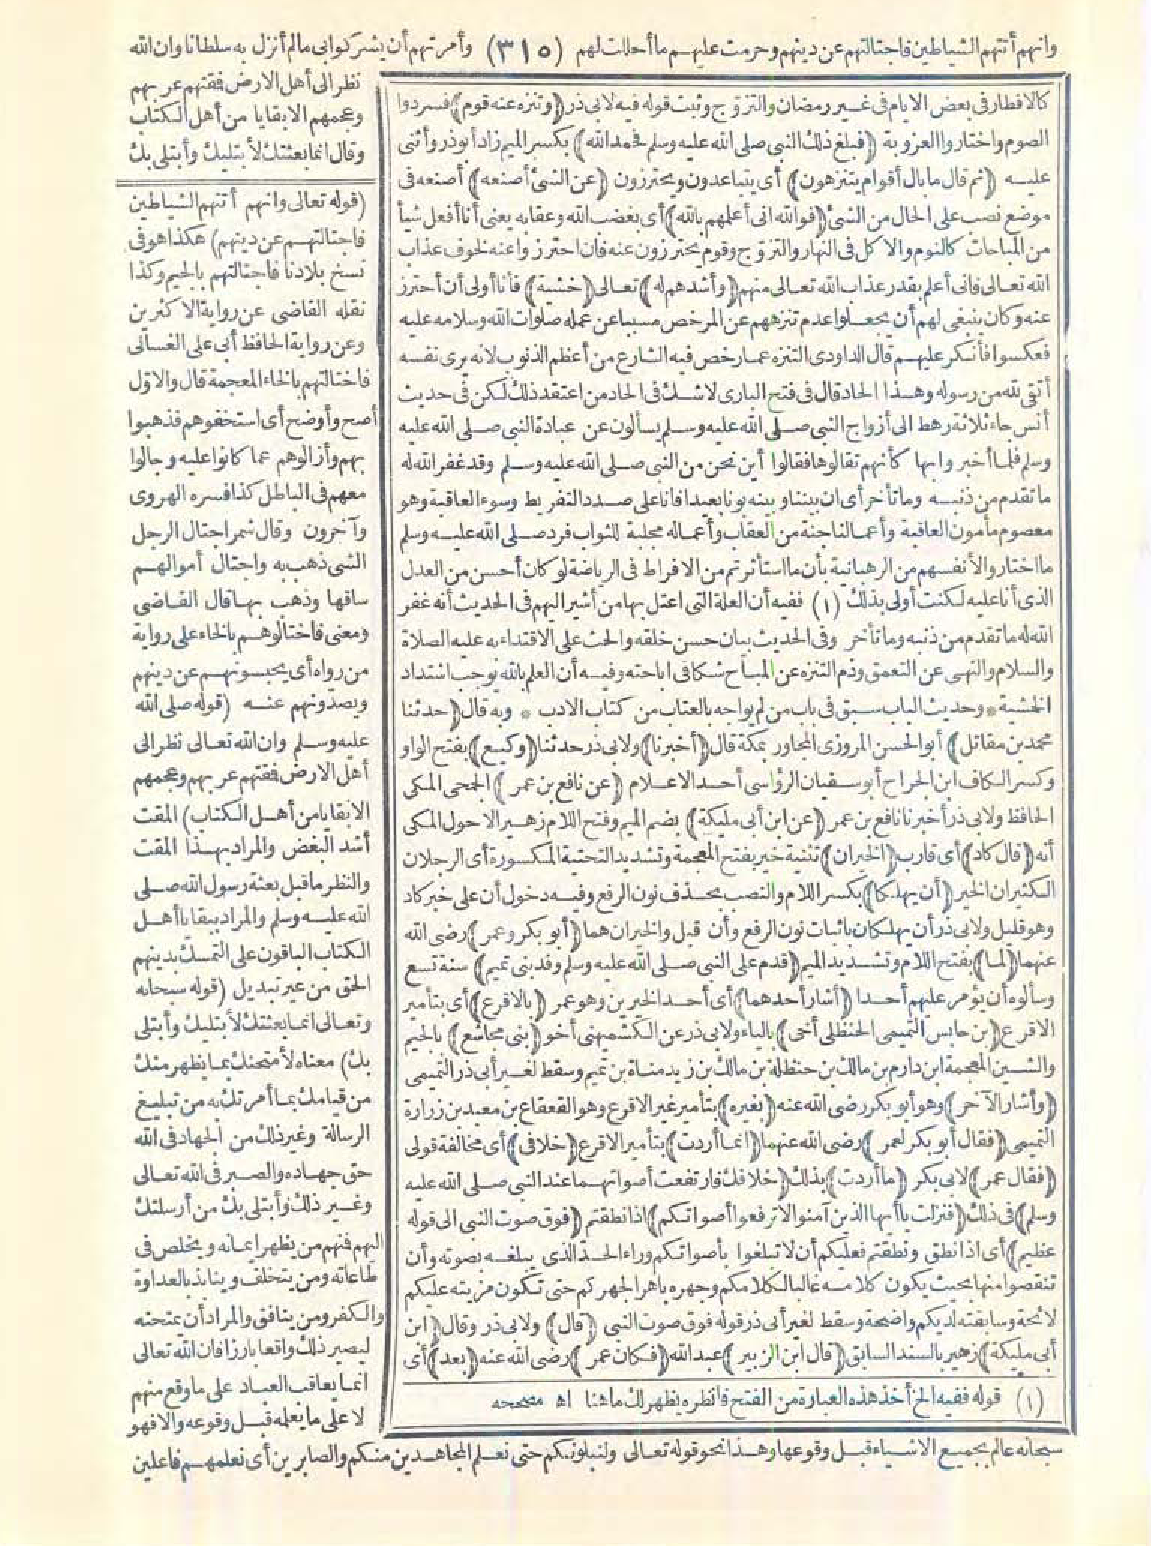 وانهم أتتهم الشياطين فاجتالتهم عن دينهم وحرمت عليهم ما أحللت لهم (٣١٥) وأمرتهم أن يشركوا بى مالم أنزل به سلطانا وان الله
كالافطار فى بعض الايام فى غير رمضان والتزوج وثبت قوله فيه لابى ذر (وتنزه عنه قوم) فسردوا
الصوم واختاروا العزوبة (فبلغ ذلك النبى صلى الله عليه وسلم فحمد الله) بكسر الميم زاد أبو ذر وأثنى
عليه (ثم قال ما بال أقوام يتنزهون) أى يتباعدون ويحترزون (عن الشئ أصنعه) أصنعه فى
موضع نصب على الحال من الشئ (فوالله انى أعلمهم بالله) أى بغضب الله وعقابه يعنى أنا أفعل شيأ
من المباحات كالنوم والاكل فى النهار والتزوج وقوم يحترزون عنه فان احترزوا عنه لخوف عذاب
الله تعالى فانى أعلم بقدر عذاب الله تعالى منهم (وأشدهم له) تعالى (خشية) فأنا أولى أن أحترز
عنه وكان ينبغى لهم أن يجعلوا عدم تنزههم عن المرخص مسببا عن عمله صلوات الله وسلامه عليه
فعكسوا فأنكر عليهم قال الداودى التنزه عما رخص فيه الشارع من أعظم الذنوب لانه يرى نفسه
أتقى لله من رسوله وهذا الحاد قال فى فتح البارى لاشك فى الحاد من اعتقد ذلك لكن فى حديث
أنس جاء ثلاثة رهط الى أزواج النبى صلى الله عليه وسلم يسألون عن عبادة النبى صلى الله عليه
وسلم فلما أخبروا بها كأنهم تقالوها فقالوا أين نحن من النبى صلى الله عليه وسلم وقد غفر الله له
ما تقدم من ذنبه وما تأخر أى ان بيننا وبينه بونا بعيدا فانا على صدد التفريط وسوء العاقبة وهو
معصوم مأمون العاقبة وأعمالنا جنة من العقاب وأعماله مجلبة للثواب فرد صلى الله عليه وسلم
ما اختاروا لأنفسهم من الرهبانية بأن ما استأثرتم من الافراط فى الرياضة لو كان أحسن من العدل
الذى أنا عليه لكنت أولى بذلك (١) ففيه أن العلة التى اعتل بها من أشير اليهم فى الحديث أنه غفر
الله له ما تقدم من ذنبه وما تأخر وفى الحديث بيان حسن خلقه والحث على الاقتداء به عليه الصلاة
والسلام والنهى عن التعمق وذم التنزه عن المباح شكا فى اباحته وفيه أن العلم بالله يوجب اشتداد
الخشية * وحديث الباب سبق فى باب من لم يواجه بالعتاب من كتاب الادب * وبه قال (حدثنا
محمد بن مقاتل) أبو الحسن المروزى المجاور بمكة قال (أخبرنا) ولابى ذر حدثنا (وكيع) بفتح الواو
وكسر الكاف ابن الجراح أبو سفيان الرؤاسى أحد الاعلام (عن نافع بن عمر) الجمحى المكى
الحافظ ولابى ذر أخبرنا نافع بن عمر (عن ابن أبى مليكة) بضم الميم وفتح اللام زهير الاحول المكى
أنه (قال كاد) أى قارب (الخيران) تثنية خير بفتح المعجمة وتشديد التحتية المكسورة أى الرجلان
الكثيران الخير (أن يهلكا) بكسر اللام والنصب بحذف نون الرفع وفيه دخول أن على خبر كاد
وهو قليل ولابى ذر أن يهلكان باثبات نون الرفع وأن قبل والخيران هما (أبو بكر وعمر) رضى الله
عنهما (لما) بفتح اللام وتشديد الميم (قدم على النبى صلى الله عليه وسلم وفد بنى تميم) سنة تسع
وسألوه أن يؤمر عليهم أحدا (أشار أحدهما) أى أحد الخيرين وهو عمر (بالاقرع) أى بتأمير
الاقرع (بن حابس التميمى الحنظلى أخى) بالياء ولابى ذر عن الكشميهنى أخو (بنى مجاشع) بالجيم
والشين المعجمة ابن دارم بن مالك بن حنظلة بن مالك بن زيد مناة بن تميم وسقط لغير أبى ذر التميمى
(وأشار الآخر) وهو أبو بكر رضى الله عنه (بغيره) بتأمير غير الاقرع وهو القعقاع بن معبد بن زرارة
التميمى (فقال أبو بكر لعمر) رضى الله عنهما (انما أردت) بتأمير الاقرع (خلافى) أى مخالفة قولى
(فقال عمر) لابى بكر (ما أردت) بذلك (خلافك فارتفعت أصواتهما عند النبى صلى الله عليه
وسلم) فى ذلك (فنزلت يا أيها الذين آمنوا لا ترفعوا أصواتكم) اذا نطقتم (فوق صوت النبى الى قوله
عظيم) أى اذا نطق ونطقتم فعليكم أن لا تبلغوا بأصواتكم وراء الحد الذى يبلغه بصوته وأن
تنقصوا منها بحيث يكون كلامه غالبا لكلامكم وجهره باهرا لجهركم حتى تكون مزيته عليكم
لائحة وسابقته لديكم واضحة وسقط لغير أبى ذر قوله فوق صوت النبى (قال) ولابى ذر وقال (ابن
أبى مليكة) زهير بالسند السابق (قال ابن الزبير) عبد الله (فكان عمر) رضى الله عنه (بعد) أى
(١) قوله ففيه الخ أخذ هذه العبارة من الفتح فانظره يظهر لك ما هنا اه مصححه
نظر الى أهل الارض فمقتهم عربهم
وعجمهم الا بقايا من أهل الكتاب
وقال انما بعثتك لأبتليك وأبتلى بك
(قوله تعالى وانهم أتتهم الشياطين
فاجتالتهم عن دينهم) هكذا هو فى
نسخ بلادنا فاجتالتهم بالجيم وكذا
نقله القاضى عن رواية الاكثرين
وعن رواية الحافظ أبى على الغسانى
فاختالتهم بالخاء المعجمة قال والاول
أصح وأوضح أى استخفوهم فذهبوا
بهم وأزالوهم عما كانوا عليه وجالوا
معهم فى الباطل كذا فسره الهروى
وآخرون وقال شمر اجتال الرجل
الشى ذهب به واجتال أموالهم
ساقها وذهب بها قال القاضى
ومعنى فاختالوهم بالخاء على رواية
من رواه أى يحبسونهم عن دينهم
ويصدونهم عنه (قوله صلى الله
عليه وسلم وان الله تعالى نظر الى
أهل الارض فمقتهم عربهم وعجمهم
الا بقايا من أهل الكتاب) المقت
أشد البغض والمراد بهذا المقت
والنظر ما قبل بعثة رسول الله صلى
الله عليه وسلم والمراد ببقايا أهل
الكتاب الباقون على التمسك بدينهم
الحق من غير تبديل (قوله سبحانه
وتعالى انما بعثتك لأبتليك وأبتلى
بك) معناه لأمتحنك بما يظهر منك
من قيامك بما أمرتك به من تبليغ
الرسالة وغير ذلك من الجهاد فى الله
حق جهاده والصبر فى الله تعالى
وغير ذلك وأبتلى بك من أرسلتك
اليهم فمنهم من يظهر ايمانه ويخلص فى
طاعاته ومن يتخلف وينابذ بالعداوة
والكفر ومن ينافق والمراد أن يمتحنه
ليصير ذلك واقعا بارزا فان الله تعالى
انما يعاقب العباد على ما وقع منهم
لا على ما يعلمه قبل وقوعه والا فهو
سبحانه عالم بجميع الاشياء قبل وقوعها وهذا نحو قوله تعالى ولنبلونكم حتى نعلم المجاهدين منكم والصابرين أى نعلمهم فاعلين